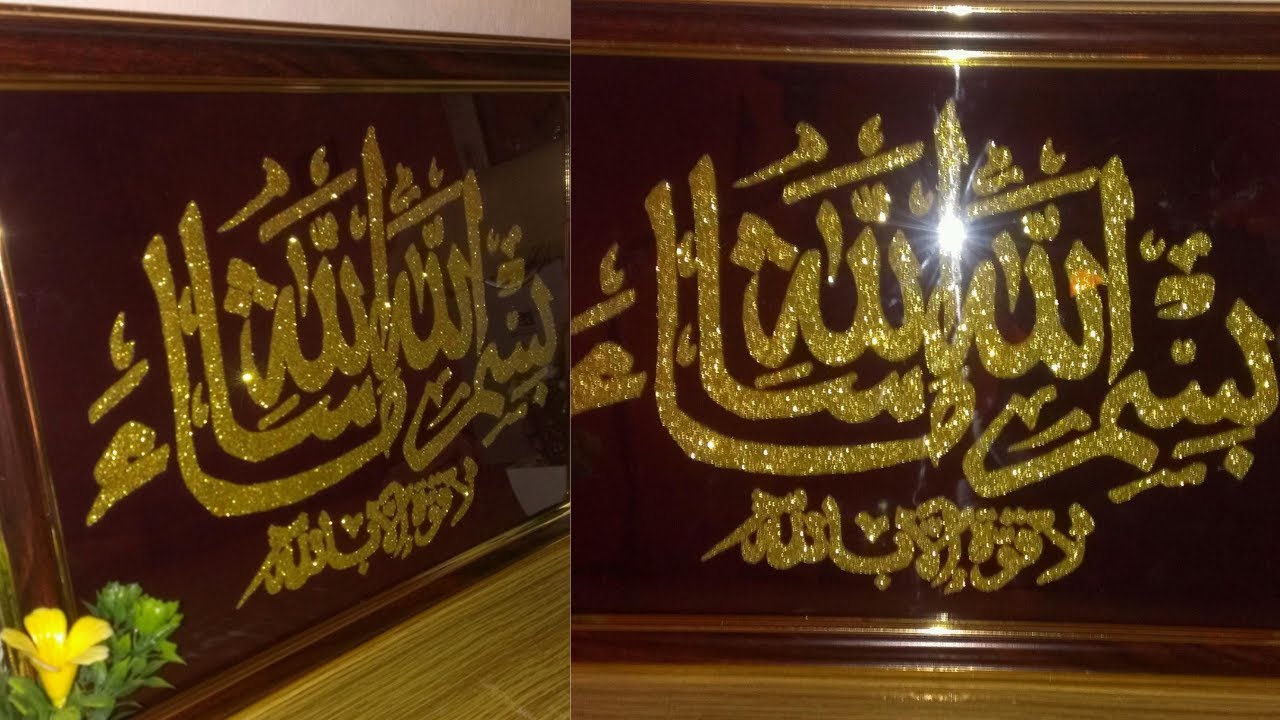 بِسْمِ اللَّه مَا شَاءَ اللَّه
لا قوة إلا بالله
بِسْمِ اللَّه مَا شَاءَ اللَّه
لا قوة إلا بالله